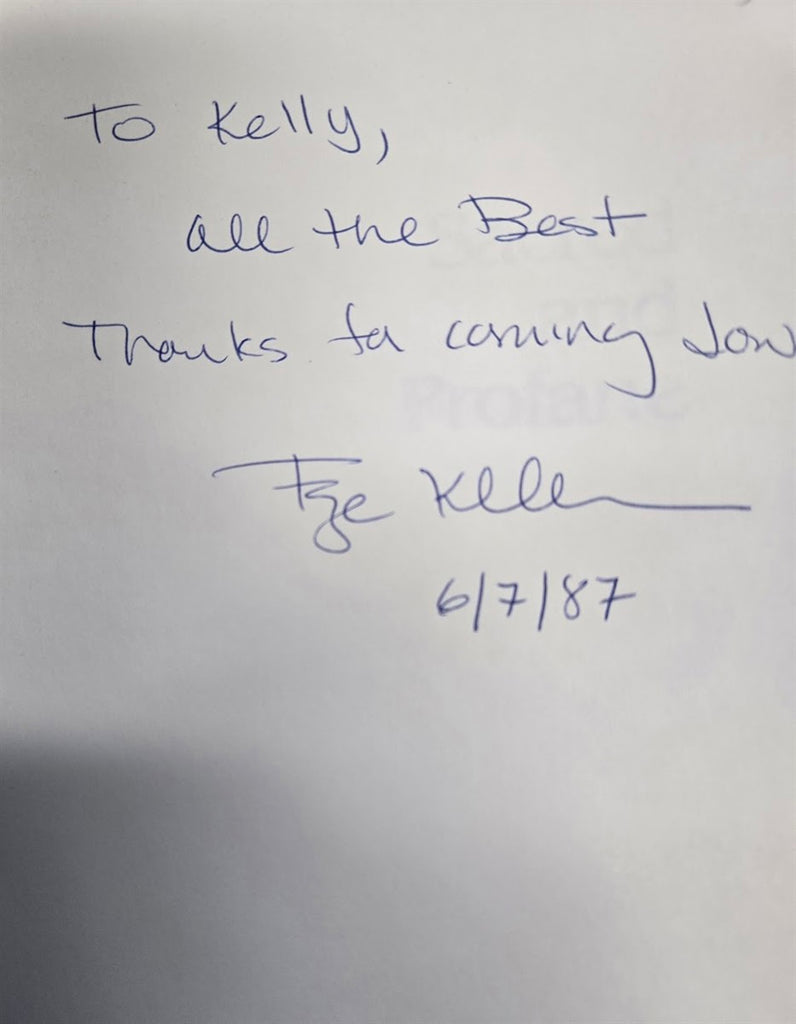 To Kelly,
all the Best
Thanks for coming dow
Faye Kelle
6/7/87
Sacred
and
Profane